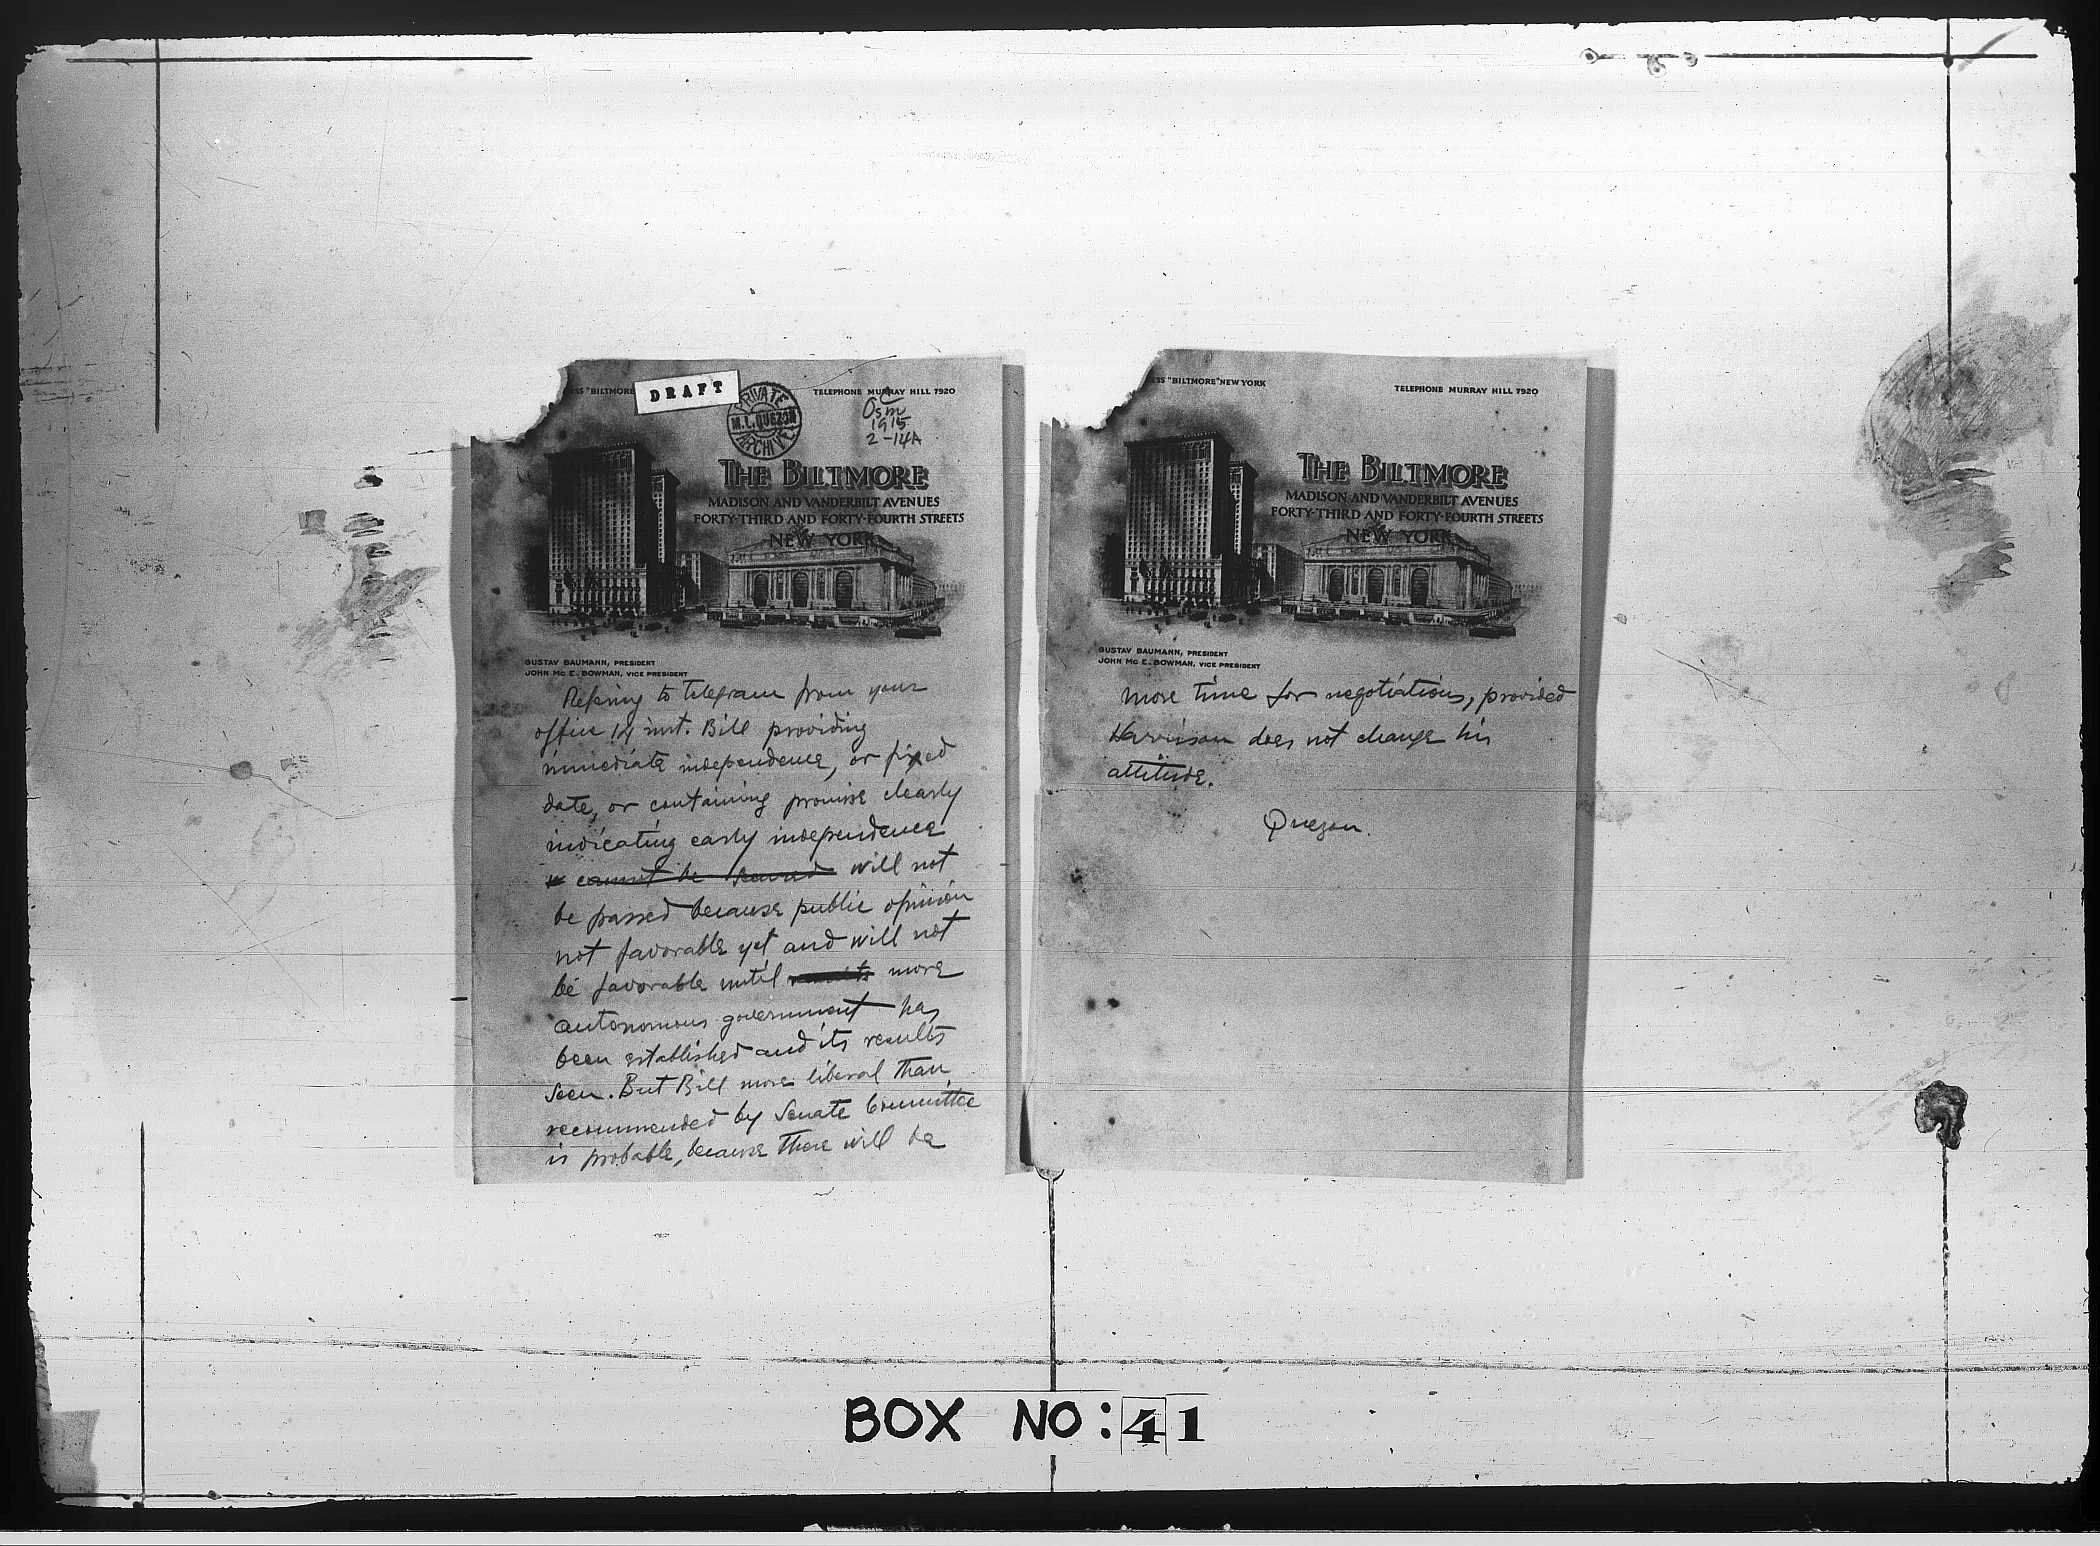 SS "BILTMORE
DRAFT
PRIVATE
M.L. QUEZON
ARCHIVE
TELEPHONE MURRAY HILL 7920
C
Osm
1915
2-14A
THE BILTMORE
MADISON AND VANDERBILT AVENUES
FORTY-THIRD AND FORTY-FOURTH STREETS
NEW YORK
GUSTAV BAUMANN, PRESIDENT
JOHN MC E. BOWMAN, VICE PRESIDENT
Refering to telegram from your
office 14 inst. Bill providing
immediate independence, or fixed
date, or containing promise clearly
indicating early independence
cannot be secured will not
be passed because public opinion
not favorable yet and will not
be favorable until results more
autonomous government has
been established and its results
seen. But Bill more liberal than
recommended by Senate Committee
is probable, because there will be
ESS "BILTMORE" NEW YORK
TELEPHONE MURRAY HILL 7920
THE BILTMORE
MADISON AND VANDERBILT AVENUES
FORTY-THIRD AND FORTY-FOURTH STREETS
NEW YORK
GUSTAV BAUMANN, PRESIDENT
JOHN MC E. BOWMAN, VICE PRESIDENT
more time for negotiations, provided
Harrison does not change his
attitude.
Quezon.
BOX NO: 41